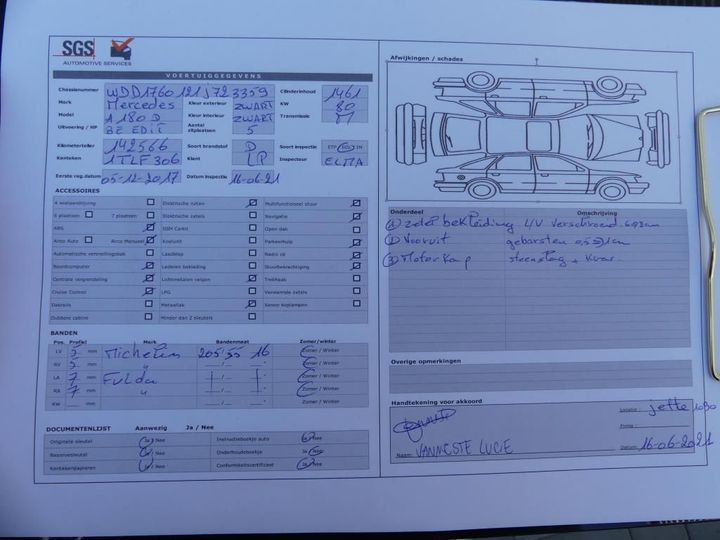 SGS
AUTOMOTIVE SERVICES
VOERTUIGGEGEVENS
Chassisnummer WDD1760121J723359 Cilinderinhoud 1461
Merk Mercedes Kleur exterieur ZWART KW 80
Model A 180 D Kleur interieur ZWART Transmissie M
Uitvoering / HP BE EDIT Aantal zitplaatsen 5
Kilometerteller 142566 Soort brandstof D Soort inspectie
Kenteken 1TLF306 Klant LP Inspecteur ELMA
Eerste reg.datum 05-12-2017 Datum inspectie 16-06-21
ACCESSOIRES
4 wielaandrijving Elektrische ruiten Multifunctioneel stuur
5 plaatsen 7 plaatsen Elektrische zetels Navigatie
ABS GSM Carkit Open dak
Airco Auto Airco Manueel Koelunit Parkeerhulp
Automatische versnellingsbak Laadklep Radio cd
Boordcomputer Lederen bekleding Stuurbekrachtiging
Centrale vergrendeling Lichtmetalen velgen Trekhaak
Cruise Control LPG Verwarmde zetels
Dakrails Metaallak Xenon koplampen
Dubbele cabine Minder dan 2 sleutels
BANDEN
Pos. Profiel Merk Bandenmaat Zomer/winter
LV 5 mm Michelin 205/55 16 Zomer / Winter
RV 5 mm " Zomer / Winter
LA 7 mm Fulda Zomer / Winter
RA 7 mm " Zomer / Winter
RW mm Zomer / Winter
DOCUMENTENLIJST Aanwezig Ja / Nee
Originele sleutel Ja / Nee Instructieboekje auto Ja / Nee
Reservesleutel Ja / Nee Onderhoudsboekje Ja / Nee
Kentekenpapieren Ja / Nee Conformiteitscertificaat Ja / Nee
Afwijkingen / schades
Onderdeel Omschrijving
1 zetel bekleding LV verschroeid
2 Voorruit gebarsten
3 Motorkap steenslag + kras
Overige opmerkingen
Handtekening voor akkoord
Locatie : jette 1090
Firma :
Naam: VANNESTE LUCIE
Datum: 16-06-2021